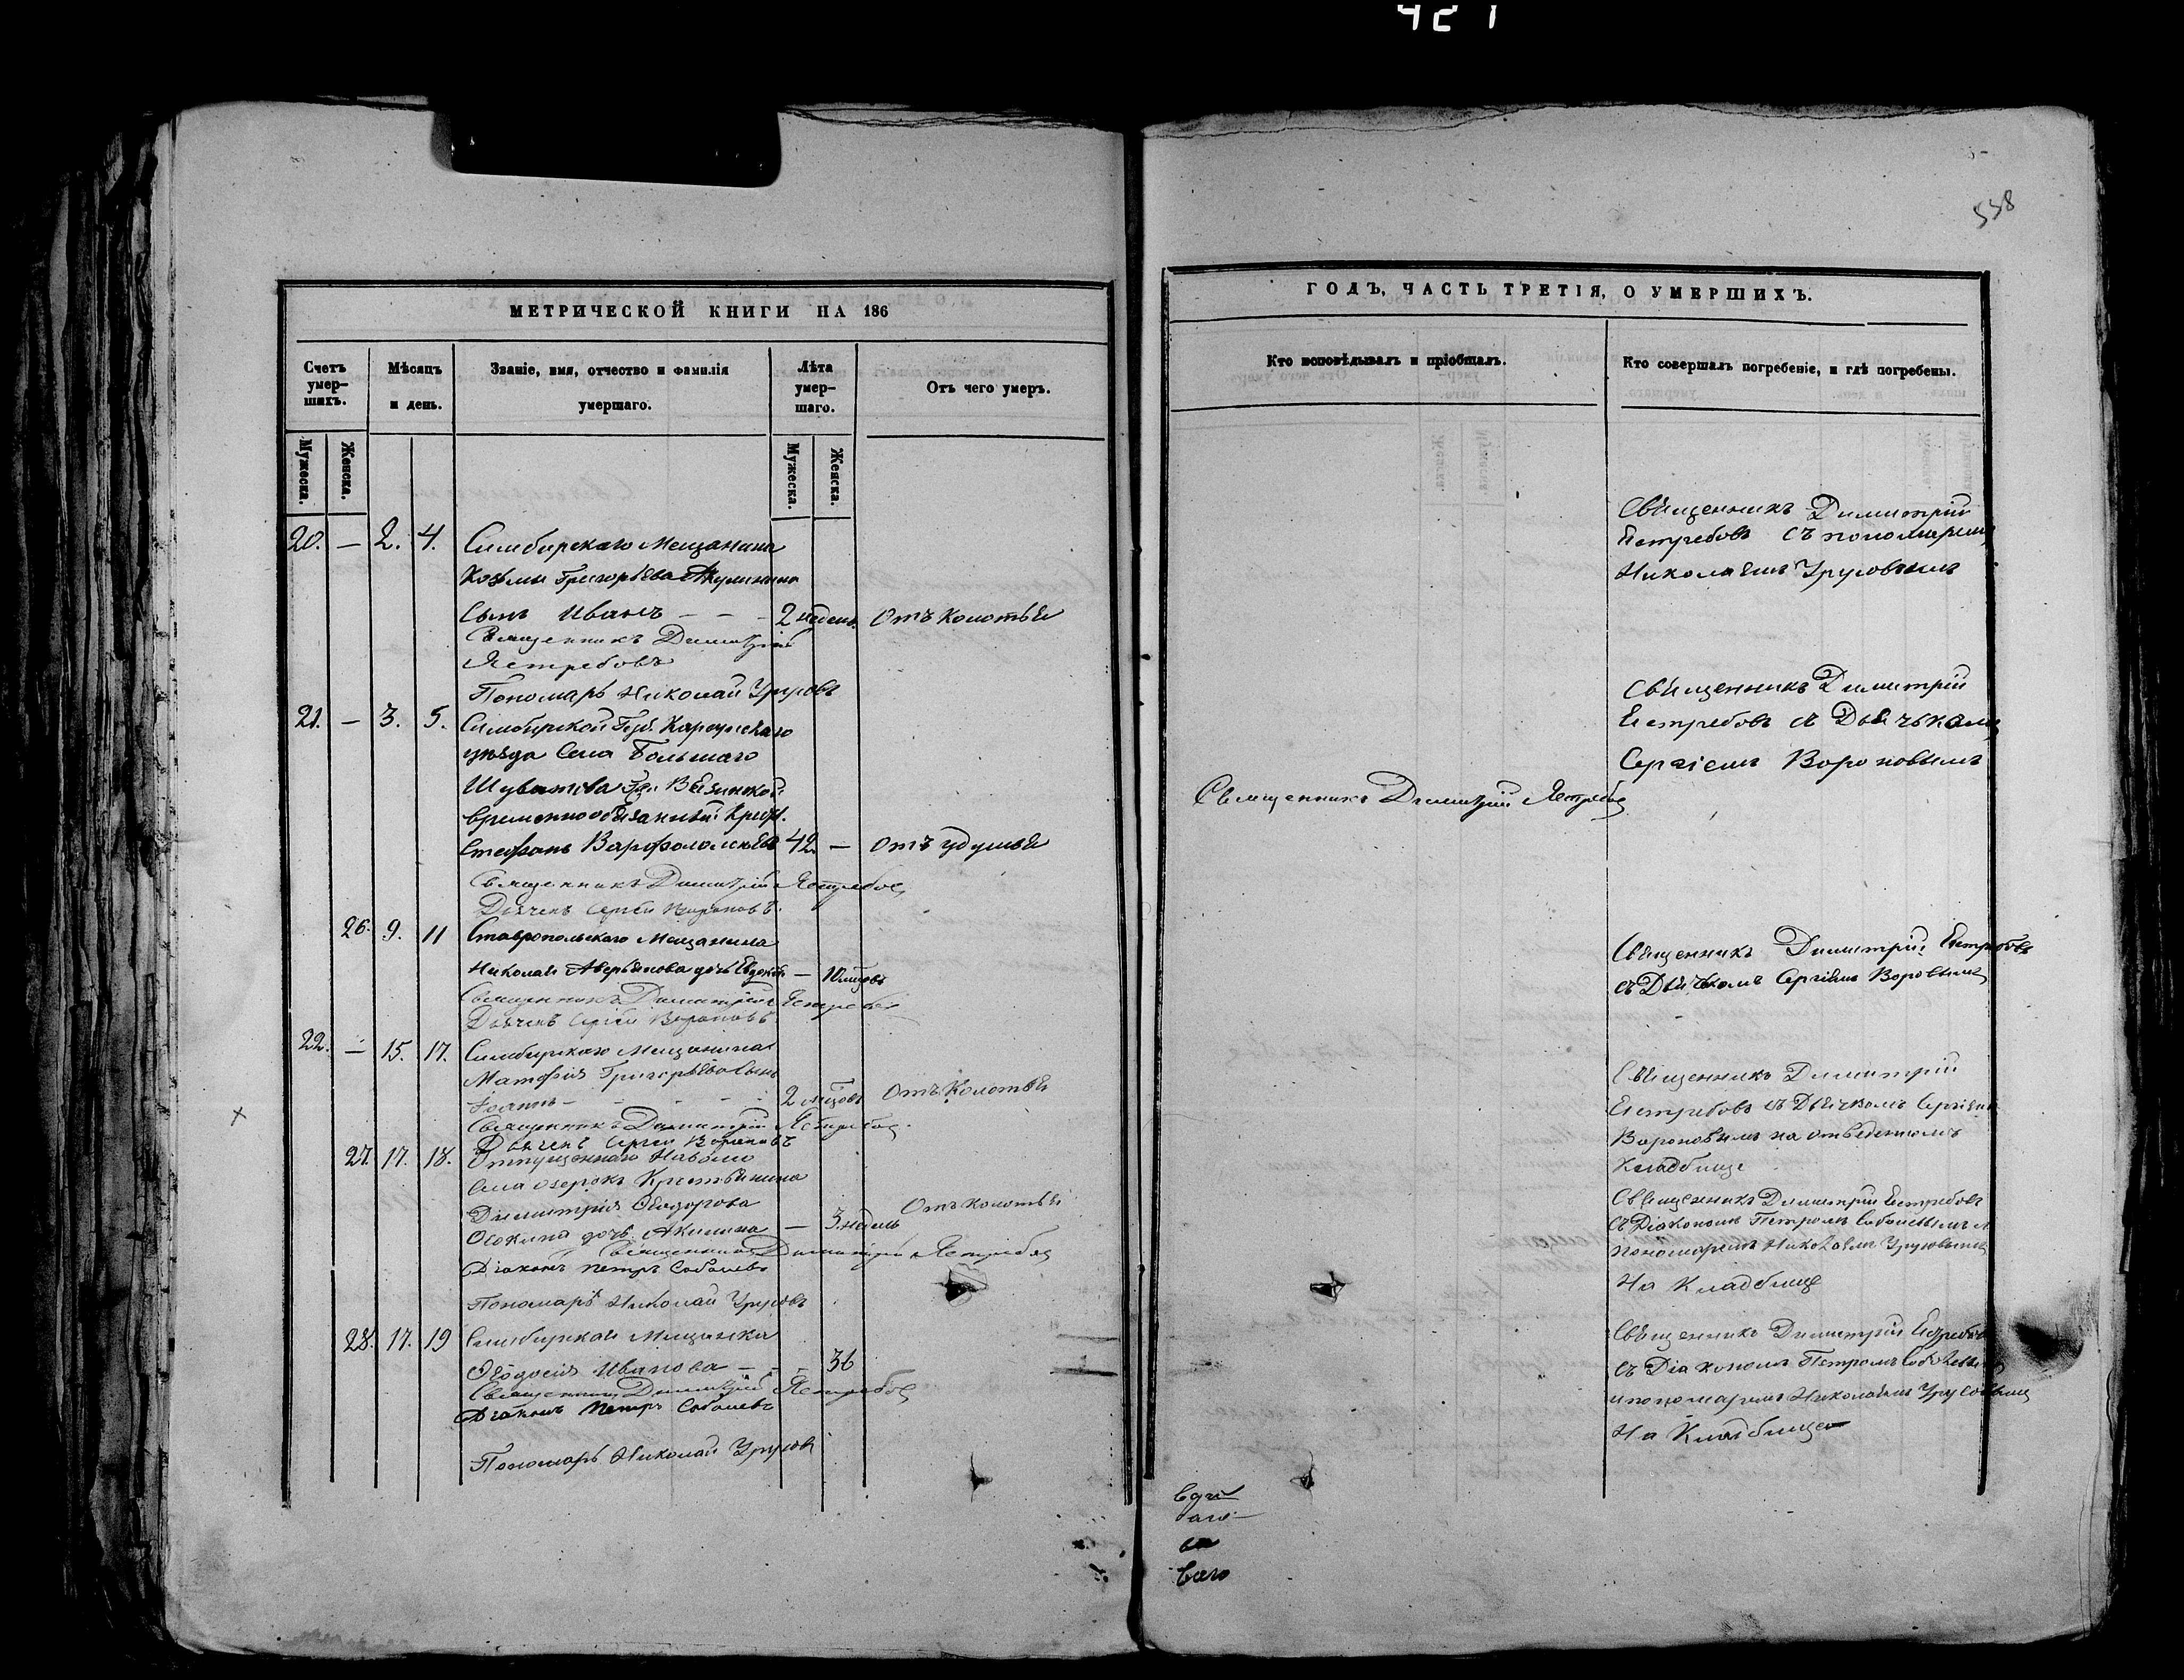 421
538
МЕТРИЧЕСКОЙ КНИГИ НА 186
Счетъ умер-шихъ.
Мѣсяцъ и день.
Званіе, имя, отчество и фамилія умершаго.
Лѣта умер-шаго.
Отъ чего умеръ.
Мужеска.
Женска.
Мужеска.
Женска.
20. — 2. 4. Симбирскаго Мещанина
Козьмы Григорьева
Сынъ Иванъ — — 2 недел. Отъ Колотья
Священникъ Димитрій
Ястребовъ
Пономарь Николай Урусовъ
21. — 3. 5. Симбирской Губ. Карсунскаго
уѣзда Села Большаго
Шуватова
временнообязанный Крест.
Стефанъ Варфоломеевъ 42. — Отъ удушья
Священникъ Димитрій Ястребовъ
Дьячекъ Сергей Вороновъ.
26. 9. 11 Ставропольскаго Мещанина
Николая Аверьянова дочь —
Священникъ Димитрій Ястребовъ
Дьячекъ Сергей Вороновъ
22. — 15. 17. Симбирскаго Мещанина
Матфія Григорьева Сынъ
Іоаннъ — 2 Отъ Колотья
Священникъ Димитрій Ястребовъ
Дьячекъ Сергей Вороновъ
27. 17. 18. Отпущеннаго На волю
села Озерокъ Крестьянина
Димитрія Ѳеодорова
дочь Акилина — 3 недель Отъ колотья
Священникъ Димитрій Ястребовъ
Діаконъ Петръ Соболевъ
Пономарь Николай Урусовъ
28. 17. 19 Симбирская Мещанка
Ѳеодосія Иванова — — 36
Священникъ Димитрій Ястребовъ
Діаконъ Петръ Соболевъ
Пономарь Николай Урусовъ
ГОДЪ, ЧАСТЬ ТРЕТІЯ, О УМЕРШИХЪ.
Кто исповѣдывалъ и пріобщалъ.
Кто совершалъ погребеніе, и гдѣ погребены.
Священникъ Димитрій
Естребовъ съ пономаремъ
Николаемъ Урусовымъ
Священникъ Димитрій
Естребовъ съ Дьячькомъ
Сергіемъ Вороновымъ
Священникъ Димитрій Ястребовъ
Священникъ Димитрій Естребовъ
съ Дьячкомъ Сергіемъ
Священникъ Димитрій
Естребовъ съ Дьячкомъ Сергіемъ
Вороновымъ на отведенномъ
Кладбище
Священникъ Димитрій Естребовъ
съ Діакономъ Петромъ Соболевымъ и
пономаремъ Николаемъ Урусовымъ
На Кладбище
Священникъ Димитрій Естребовъ
съ Діакономъ Петромъ Соболевымъ
и пономаремъ Николаемъ Урусовымъ
На Кладбище